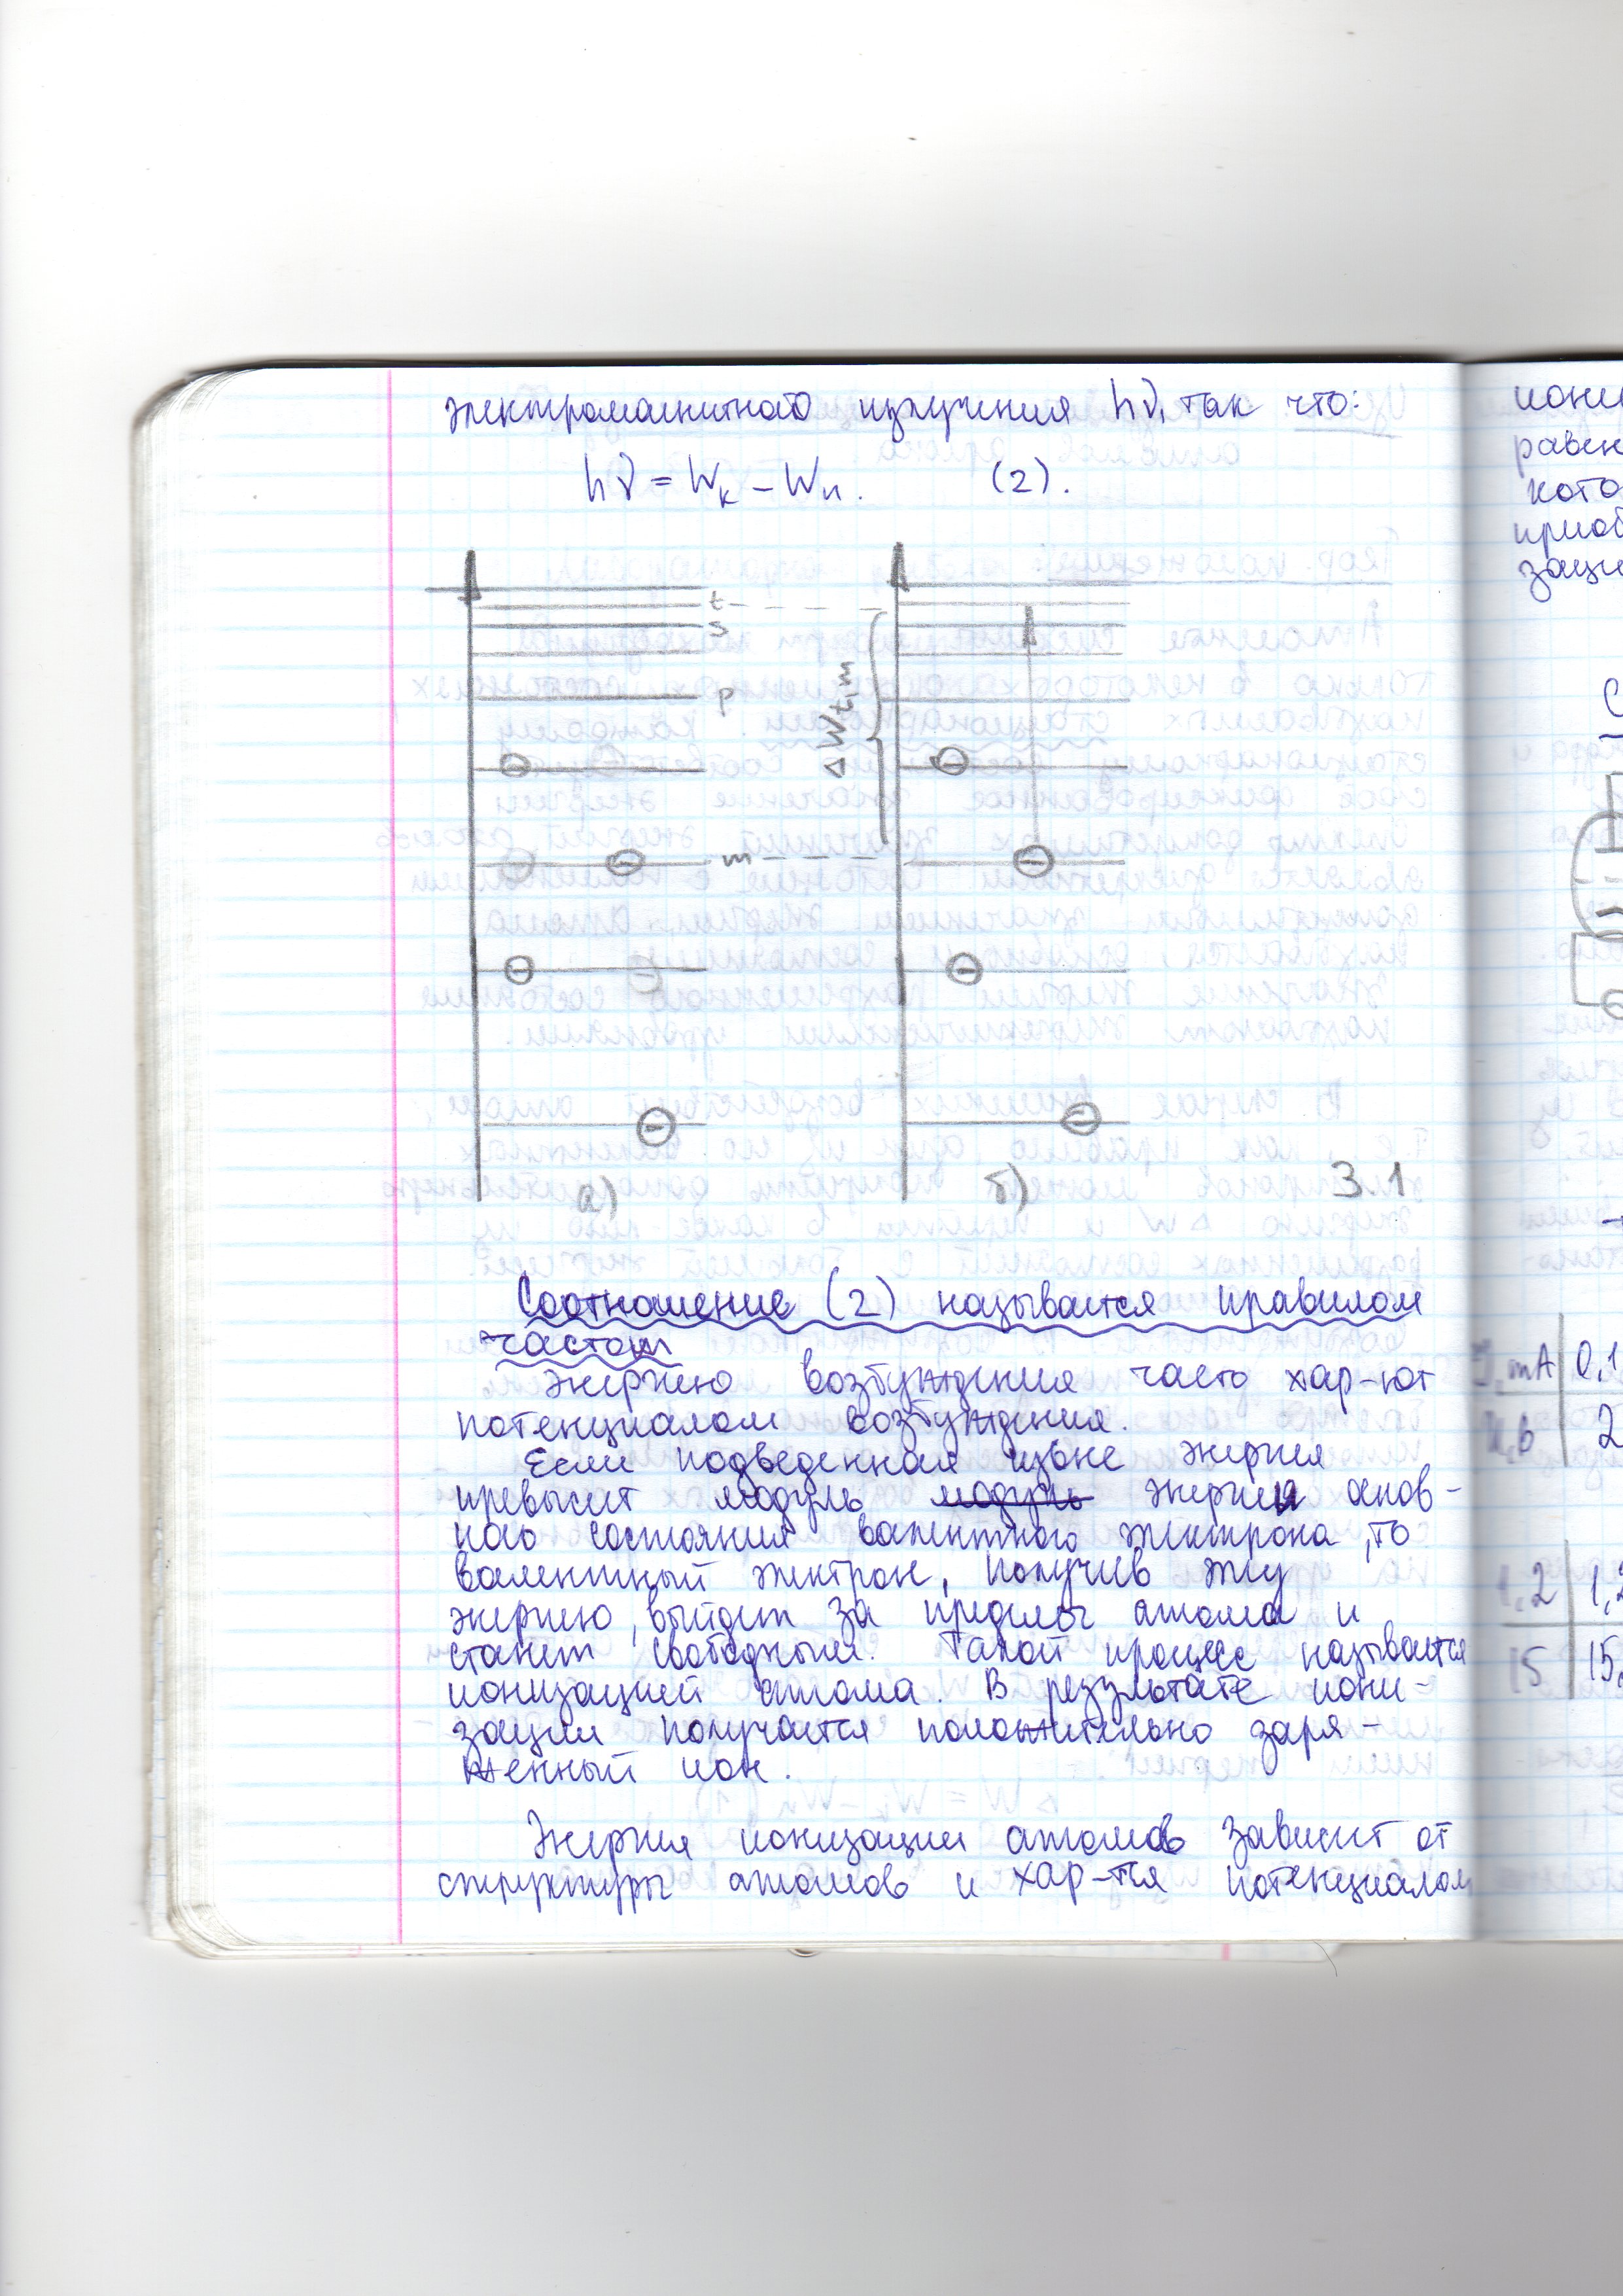 электромагнитного излучения hν, так что:
hν = Wк – Wn. (2).
t
s
p
ΔWt,m
m
а)
б)
3.1
Соотношение (2) называется правилом
частот
Энергию возбуждения часто хар-ют
потенциалом возбуждения.
Если подведенная извне энергия
превысит модуль модуль энергия основ-
ного состояния валентного электрона, то
валентный электрон, получив эту
энергию, выйдет за пределы атома и
станет свободным. Такой процесс называется
ионизацией атома. В результате иони-
зации получается положительно заря-
женный ион.
Энергия ионизации атомов зависит от
структуры атомов и хар-тся потенциалом
иони
равен
кото
приоб
заци
I, mA 0,1
U, В 2
1,2 1,2
15 15,